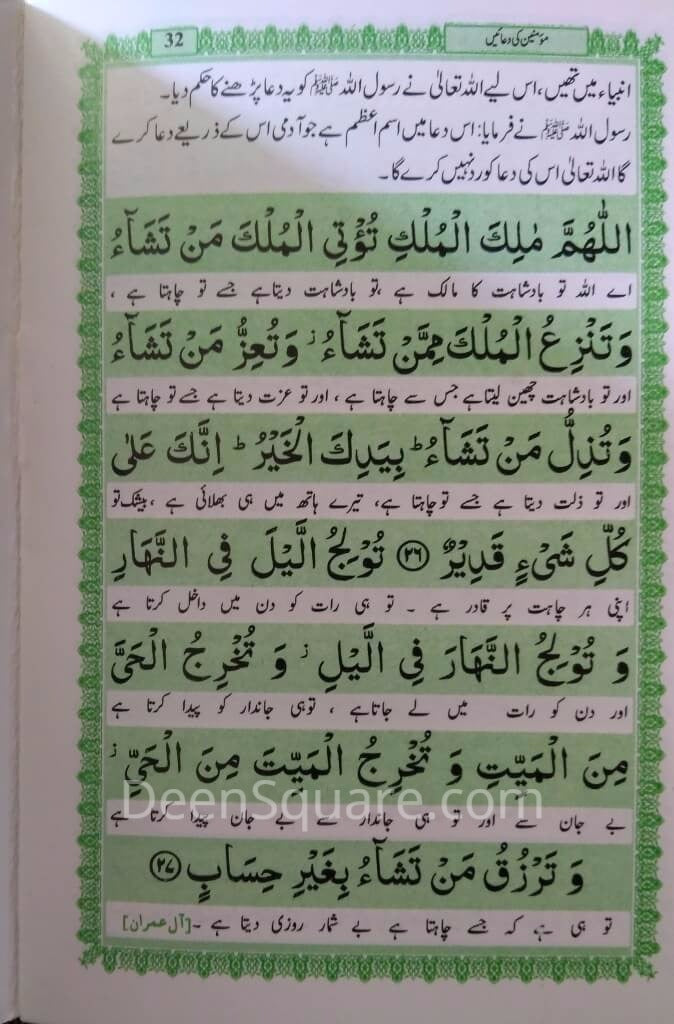 32
مؤمنین کی دعائیں
انبیاء میں تھیں، اس لیے اللہ تعالیٰ نے رسول اللہ ﷺ کو یہ دعا پڑھنے کا حکم دیا۔
رسول اللہ ﷺ نے فرمایا: اس دعا میں اسم اعظم ہے جو آدمی اس کے ذریعے دعا کرے
گا اللہ تعالیٰ اس کی دعا کو رد نہیں کرے گا۔
اللّٰهُمَّ مٰلِكَ الْمُلْكِ تُؤْتِی الْمُلْكَ مَنْ تَشَآءُ
اے اللہ تو بادشاہت کا مالک ہے ،تو بادشاہت دیتاہے جسے تو چاہتا ہے ،
وَ تَنْزِعُ الْمُلْكَ مِمَّنْ تَشَآءُ ۫ وَ تُعِزُّ مَنْ تَشَآءُ
اور تو بادشاہت چھین لیتاہے جس سے چاہتا ہے ، اور تو عزت دیتا ہے جسے تو چاہتا ہے
وَ تُذِلُّ مَنْ تَشَآءُ ؕ بِیَدِكَ الْخَیْرُ ؕ اِنَّكَ عَلٰی
اور تو ذلت دیتا ہے جسے تو چاہتا ہے، تیرے ہاتھ میں ہی بھلائی ہے ،بیشک تو
كُلِّ شَیْءٍ قَدِیْرٌ ﴿۲۶﴾ تُوْلِجُ الَّیْلَ فِی النَّهَارِ
اپنی ہر چاہت پر قادر ہے ۔ تو ہی رات کو دن میں داخل کرتا ہے
وَ تُوْلِجُ النَّهَارَ فِی الَّیْلِ ۫ وَ تُخْرِجُ الْحَیَّ
اور دن کو رات میں لے جاتاہے ، توہی جاندار کو پیدا کرتا ہے
مِنَ الْمَیِّتِ وَ تُخْرِجُ الْمَیِّتَ مِنَ الْحَیِّ ۫
DeenSquare.com
بے جان سے اور تو ہی جاندار سے بے جان پیدا کرتا ہے
وَ تَرْزُقُ مَنْ تَشَآءُ بِغَیْرِ حِسَابٍ ﴿۲۷﴾
تو ہی ہے کہ جسے چاہتا ہے بے شمار روزی دیتا ہے ۔[آل عمران]